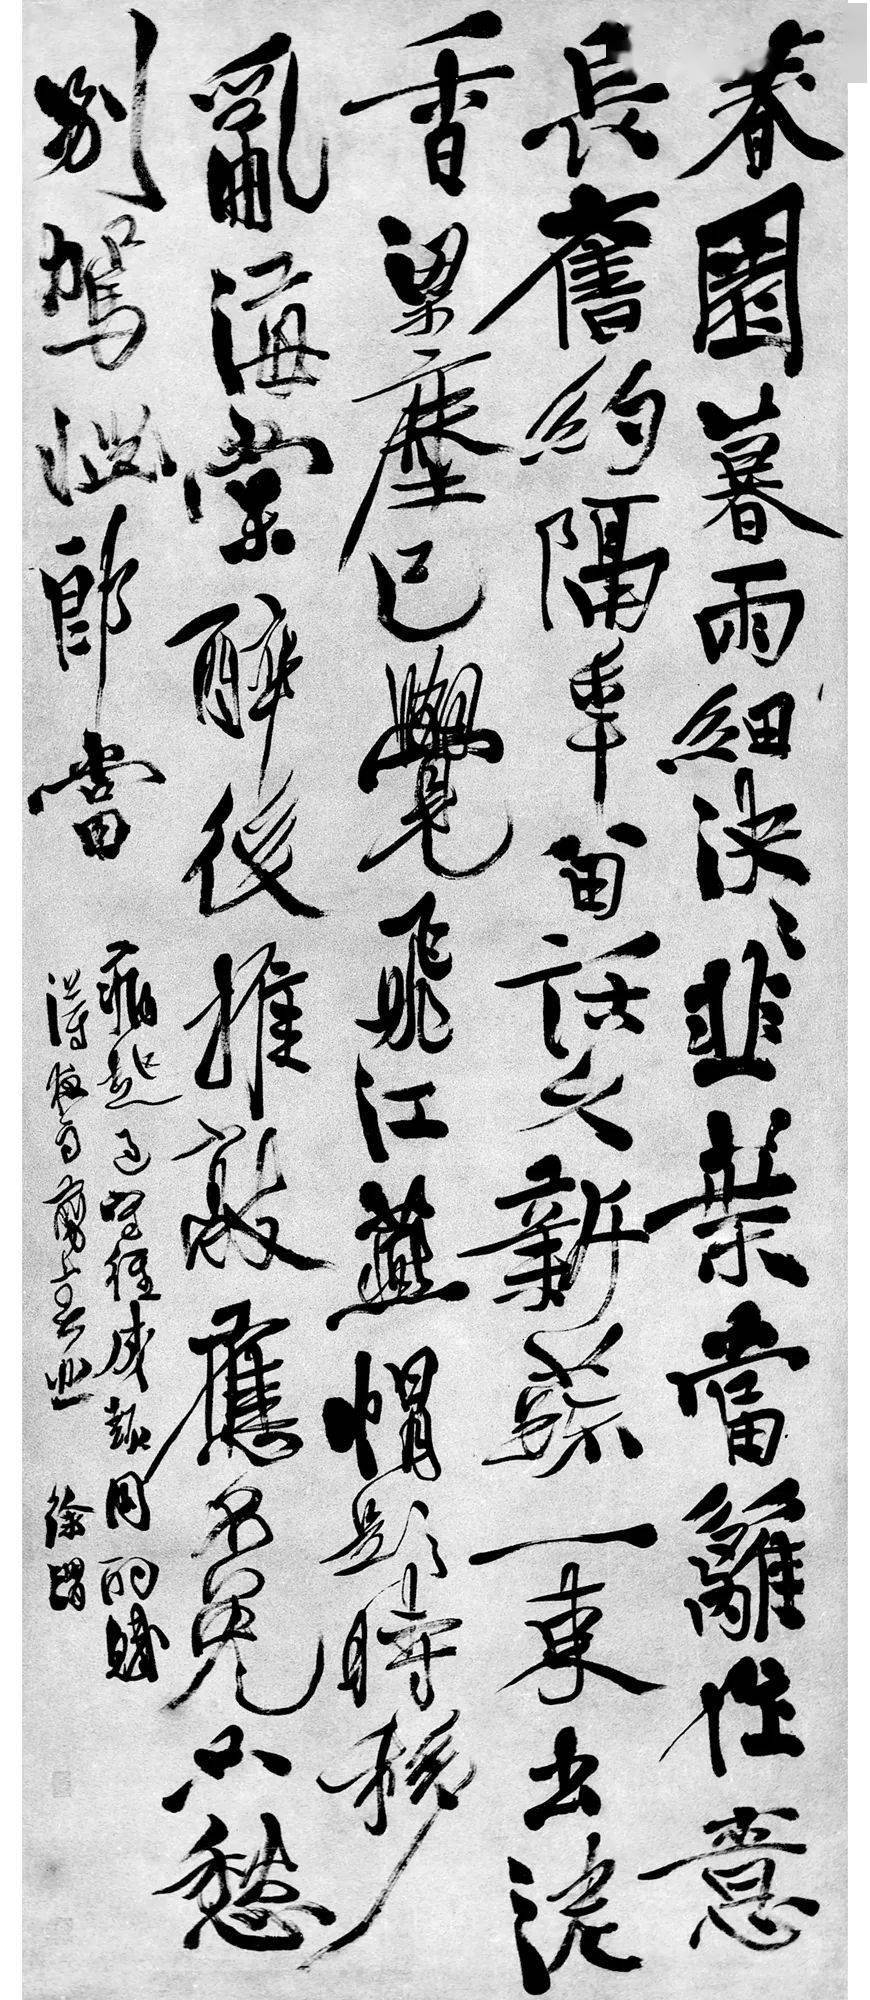 春園暮雨細泱〻韭葉當籬作意
長舊約隔年留話久新蔬一束出泥
香梁塵已覺飛江燕帽影時移
亂海棠醉後推敲應不免只愁
別駕惱郎當
同酌賦
得夜雨剪春韭 徐渭